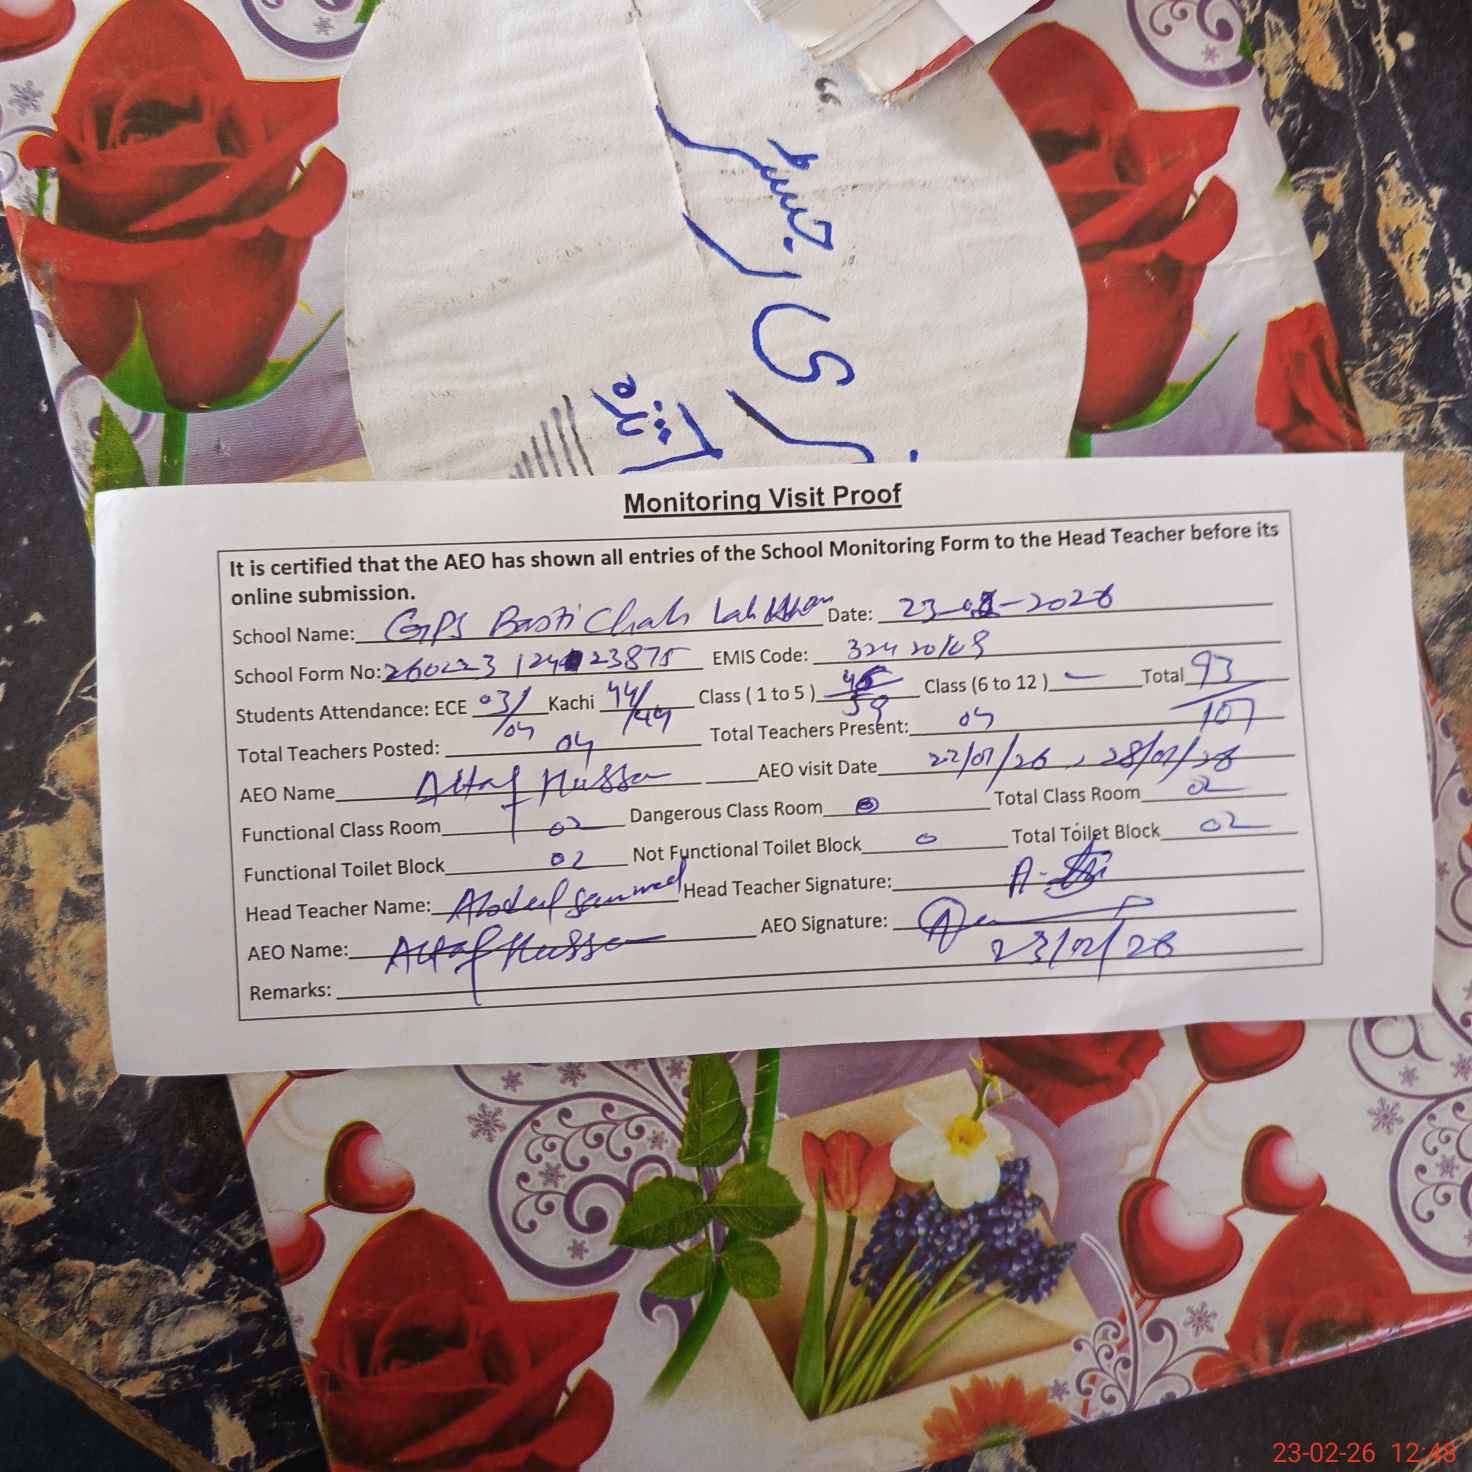 رجسٹر
Monitoring Visit Proof
It is certified that the AEO has shown all entries of the School Monitoring Form to the Head Teacher before its
online submission.
School Name: GPS Basti Chah Lah Date: 23-02-2026
School Form No: EMIS Code:
Students Attendance: ECE 03/04 Kachi 44/44 Class ( 1 to 5 ) 59 Class (6 to 12 ) — Total 93/107
Total Teachers Posted: 04 Total Teachers Present: 04
AEO Name Altaf Hussain AEO visit Date 22/01/26, 28/01/26
Functional Class Room 02 Dangerous Class Room 0 Total Class Room 02
Functional Toilet Block 02 Not Functional Toilet Block 0 Total Toilet Block 02
Head Teacher Name: Head Teacher Signature:
AEO Name: Altaf Hussain AEO Signature:
23/02/26
Remarks:
23-02-26 12:48